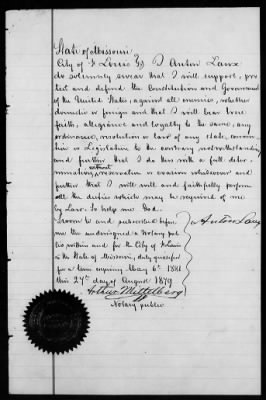 State of Missouri
City of St Louis SS I Anton Lanx
do solemnly swear that I will support, pro
tect and defend the Constitution and Government
of the United States, against all enemies, whether
domestic or foreign and that I will bear true
faith, allegiance and loyalty to the same, any
ordinance, resolution or law of any state, conven
tion or Legislature to the contrary notwithstanding
and further that I do this with a full deter-
mination, without reservation or evasion whatsoever and
further that I will well and faithfully perform
all the duties which may be required of me
by Law. So help me God.
Sworn to and subscribed before
me the undersigned a Notary pub
lic within and for the City of St Louis
& the State of Missouri, duly qualified
for a term expiring May 6th 1881
this 27th day of August 1879
Anton
Arthur Mittelberg
Notary public